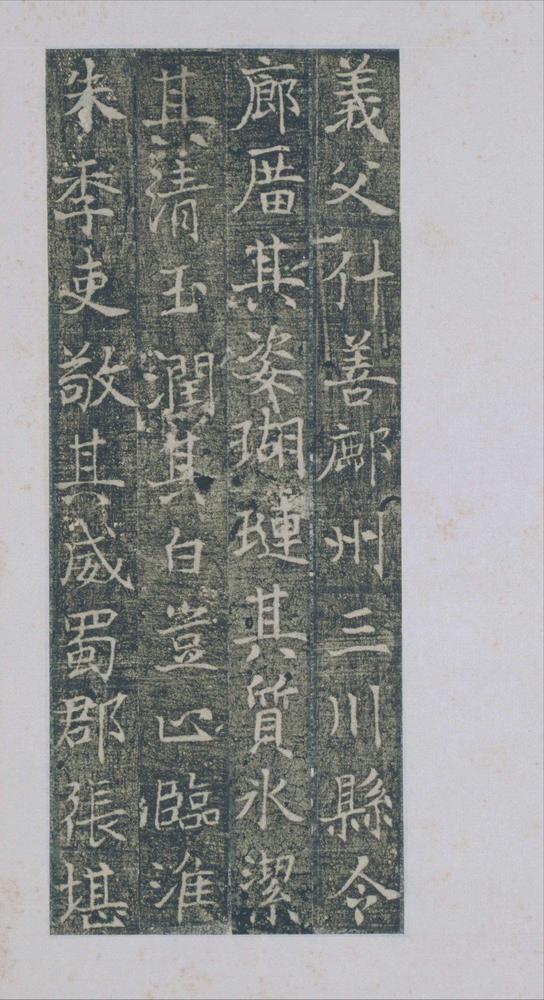 義父什善鄜州三川縣令
廊厝其姿瑚璉其質水潔
其清玉潤其白豈止臨淮
朱季吏敬其威蜀郡張堪